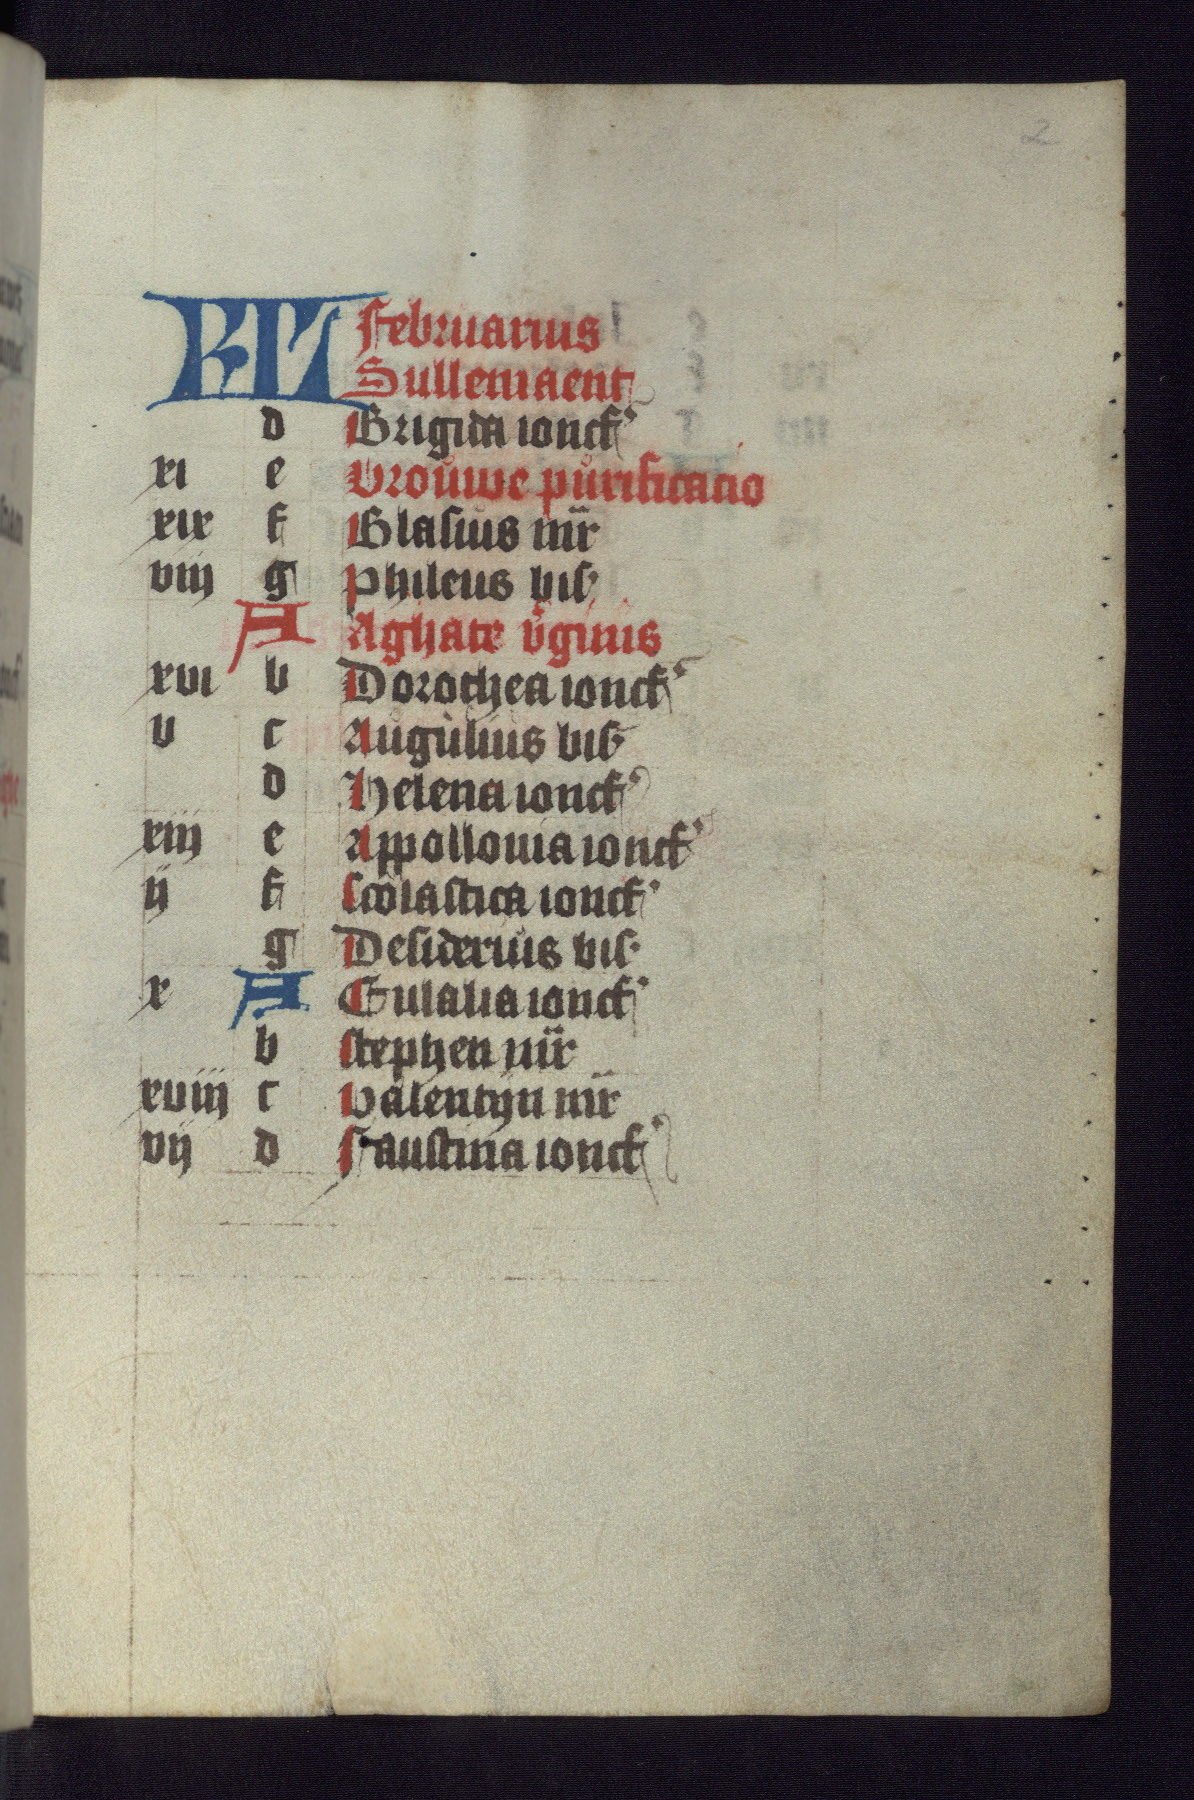 2
KL Februarius
Sullemaent
d Brigida ioncf'
xi e Vrouwe purificacio
xix f Blasius mr̄
viij g Phileus bis.
A Aghate v̄ginis
xvi b Dorothea ioncf'
v c Augulius bis.
d Helena ioncf'
xiij e Appollonia ioncf'
ij f Scōlastica ioncf'
g Desiderius bis.
x A Eulalia ioncf'
b Stephen mr̄
xviij c Valentijn mr̄
vij d Faustina ioncf'